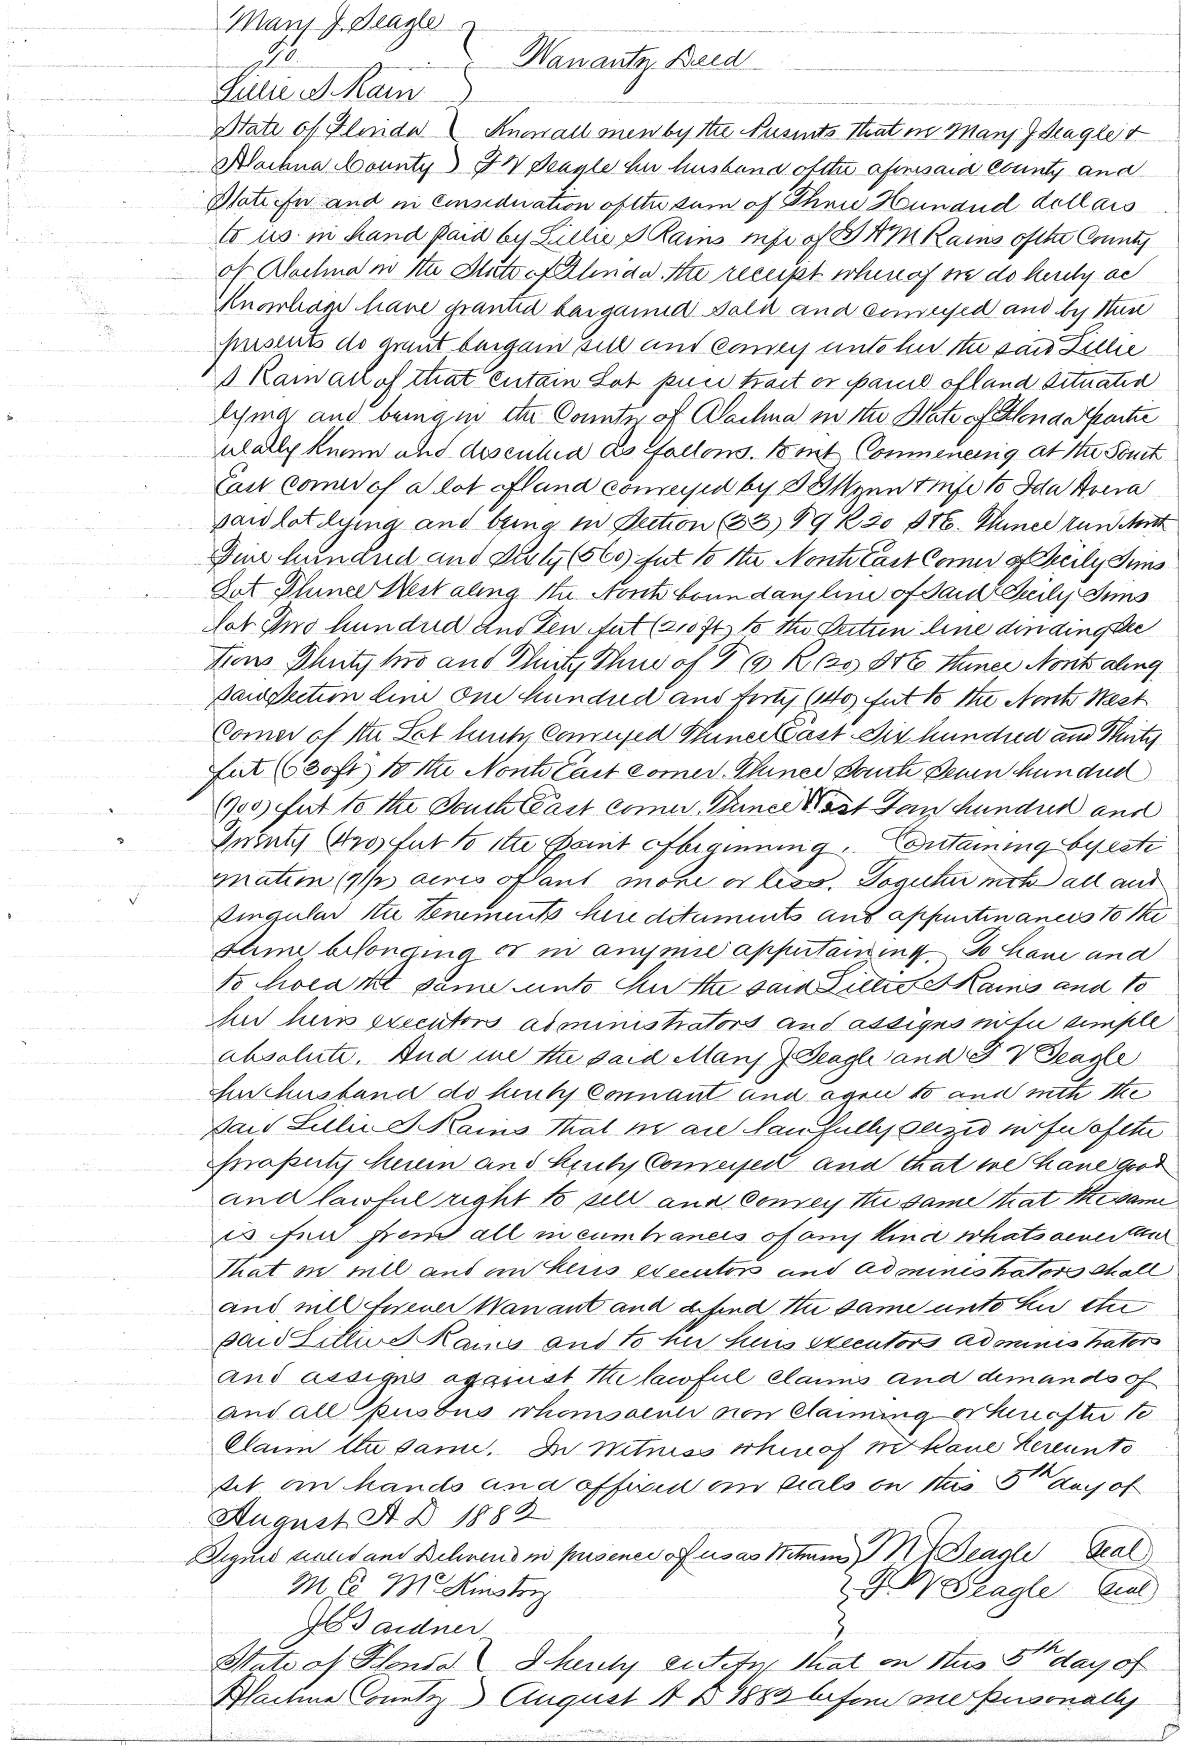 Mary J. Seagle
To
Warranty Deed
Lillie S Rain
State of Florida Know all men by the Presents that we Mary J Seagle &
Alachua County J V Seagle her husband of the aforesaid County and
State for and in consideration of the sum of Three Hundred dollars
to us in hand paid by Lillie S Rains wife of G A M Rains of the County
of Alachua in the State of Florida the receipt whereof we do hereby ac
knowledge have granted bargained sold and conveyed and by these
presents do grant bargain sell and convey unto her the said Lillie
S Rain all of that certain Lot piece tract or parcel of land situated
lying and being in the County of Alachua in the State of Florida partic
ularly known and described as follows. to wit Commencing at the South
East corner of a lot of land conveyed by Wynn & wife to Ida Avera
said lot lying and being in Section (33) T 9 R 20 S & E. Thence run North
Five hundred and Sixty (560) feet to the North East Corner of Scicily Sims
Lot Thence West along the North boundary line of said Scicily Sims
lot Two hundred and Ten feet (210 ft) to the Section line dividing Sec
tions Thirty two and Thirty Three of T (9) R (20) S & E thence North along
said Section line One hundred and forty (140) feet to the North West
Corner of the Lot hereby Conveyed Thence East Six hundred and Thirty
feet (630 ft) to the North East corner. Thence South Seven hundred
(700) feet to the South East corner. Thence West Four hundred and
Twenty (420) feet to the point of beginning. Containing by esti
mation (7 1/2) acres of land more or less. Together with all and
singular the tenements hereditaments and appurtinances to the
same belonging or in anywise appertaining. To have and
to hold the same unto her the said Lillie S Rains and to
her heirs executors administrators and assigns in fee simple
absolute. And we the said Mary J Seagle and J V Seagle
her husband do hereby Covenant and agree to and with the
said Lillie S Rains that we are lawfully seized in fee of the
property herein and hereby Conveyed and that we have good
and lawful right to sell and Convey the same that the same
is free from all incumbrances of any kind whatsoever and
that we will and our heirs executors and administrators shall
and will forever Warrant and defend the same unto her the
said Lillie S Rains and to her heirs executors administrators
and assigns against the lawful claims and demands of
and all persons whomsoever now Claiming or hereafter to
Claim the same. In witness whereof we have hereunto
set our hands and affixed our seals on this 5th day of
August A D 1882
Signed sealed and Delivered in presence of us as Witnesses M J Seagle Seal
M C McKinstry J V Seagle Seal
J C Gardner
State of Florida I hereby certify that on this 5th day of
Alachua County August A D 1882 before me personally